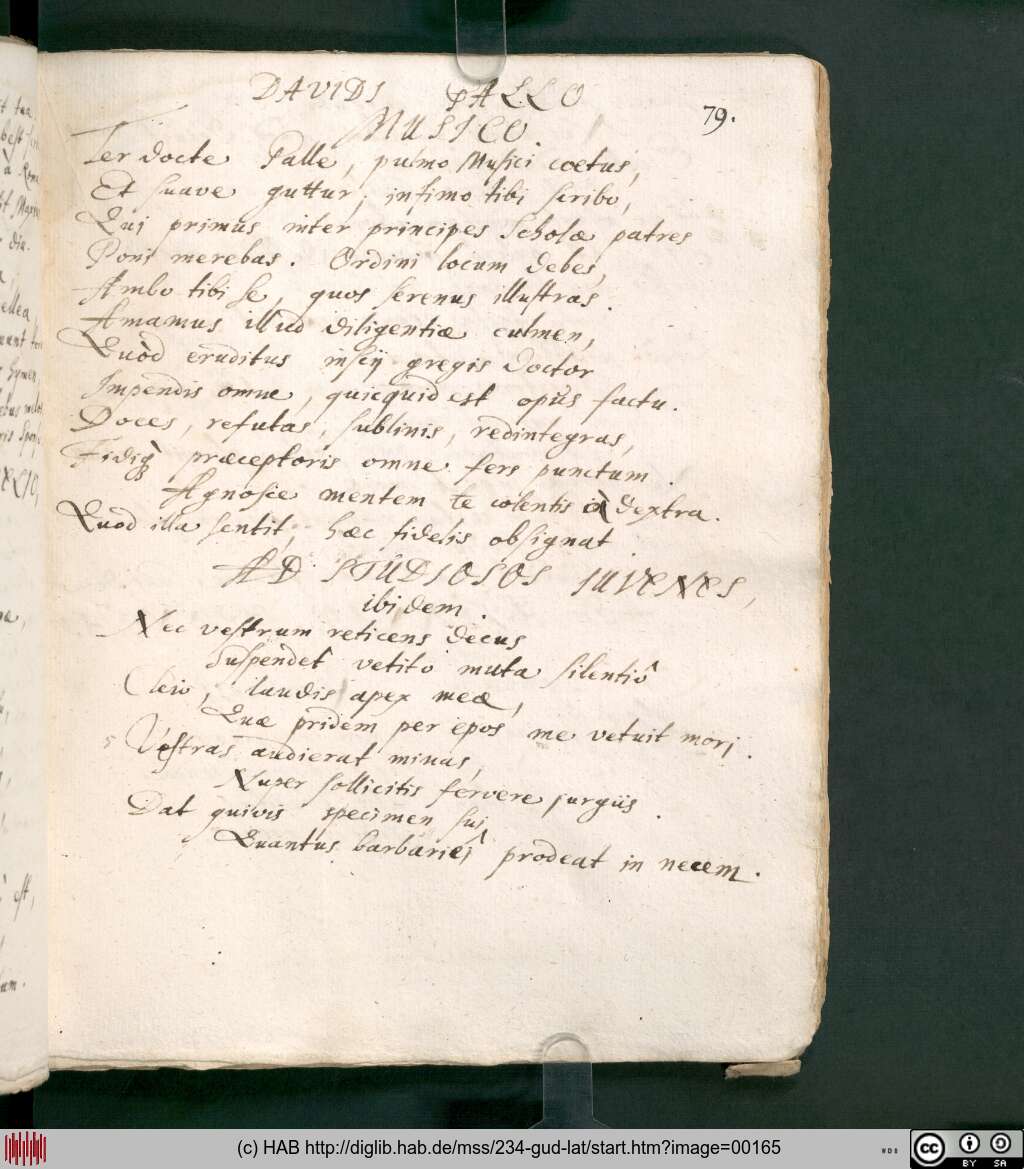 DAVIDI PALLO
79.
MUSICO.
Ter docte Palle, pulmo Musici coetus,
Et suave guttur, intimo tibi scribo,
Qui primus inter principes Scholæ patres
Poni merebas. Ordini locum debes,
Ambo tibi se, quos serenus illustras.
Amamus illud diligentiæ culmen,
Quòd eruditus inscij gregis Doctor
Impendis omne, quicquid est opus factu.
Doces, refutas, sublinis, redintegras,
Fidiq præceptoris omne fers punctum.
Agnosce mentem te colentis dextra.
Quod illa sentit, hæc fidelis obsignat
AD STUDIOSOS IUVENES,
ibidem.
Nec vestrum reticens decus
Suspendet vetito muta silentiô
Cleio, laudis apex meæ,
Quæ pridem per epos me vetuit mori.
5 Vestras audierat minas,
Nuper sollicitis fervere jurgiis.
Dat quivis specimen sui
Quantus barbariei prodeat in necem.
(c) HAB http://diglib.hab.de/mss/234-gud-lat/start.htm?image=00165
cc BY SA